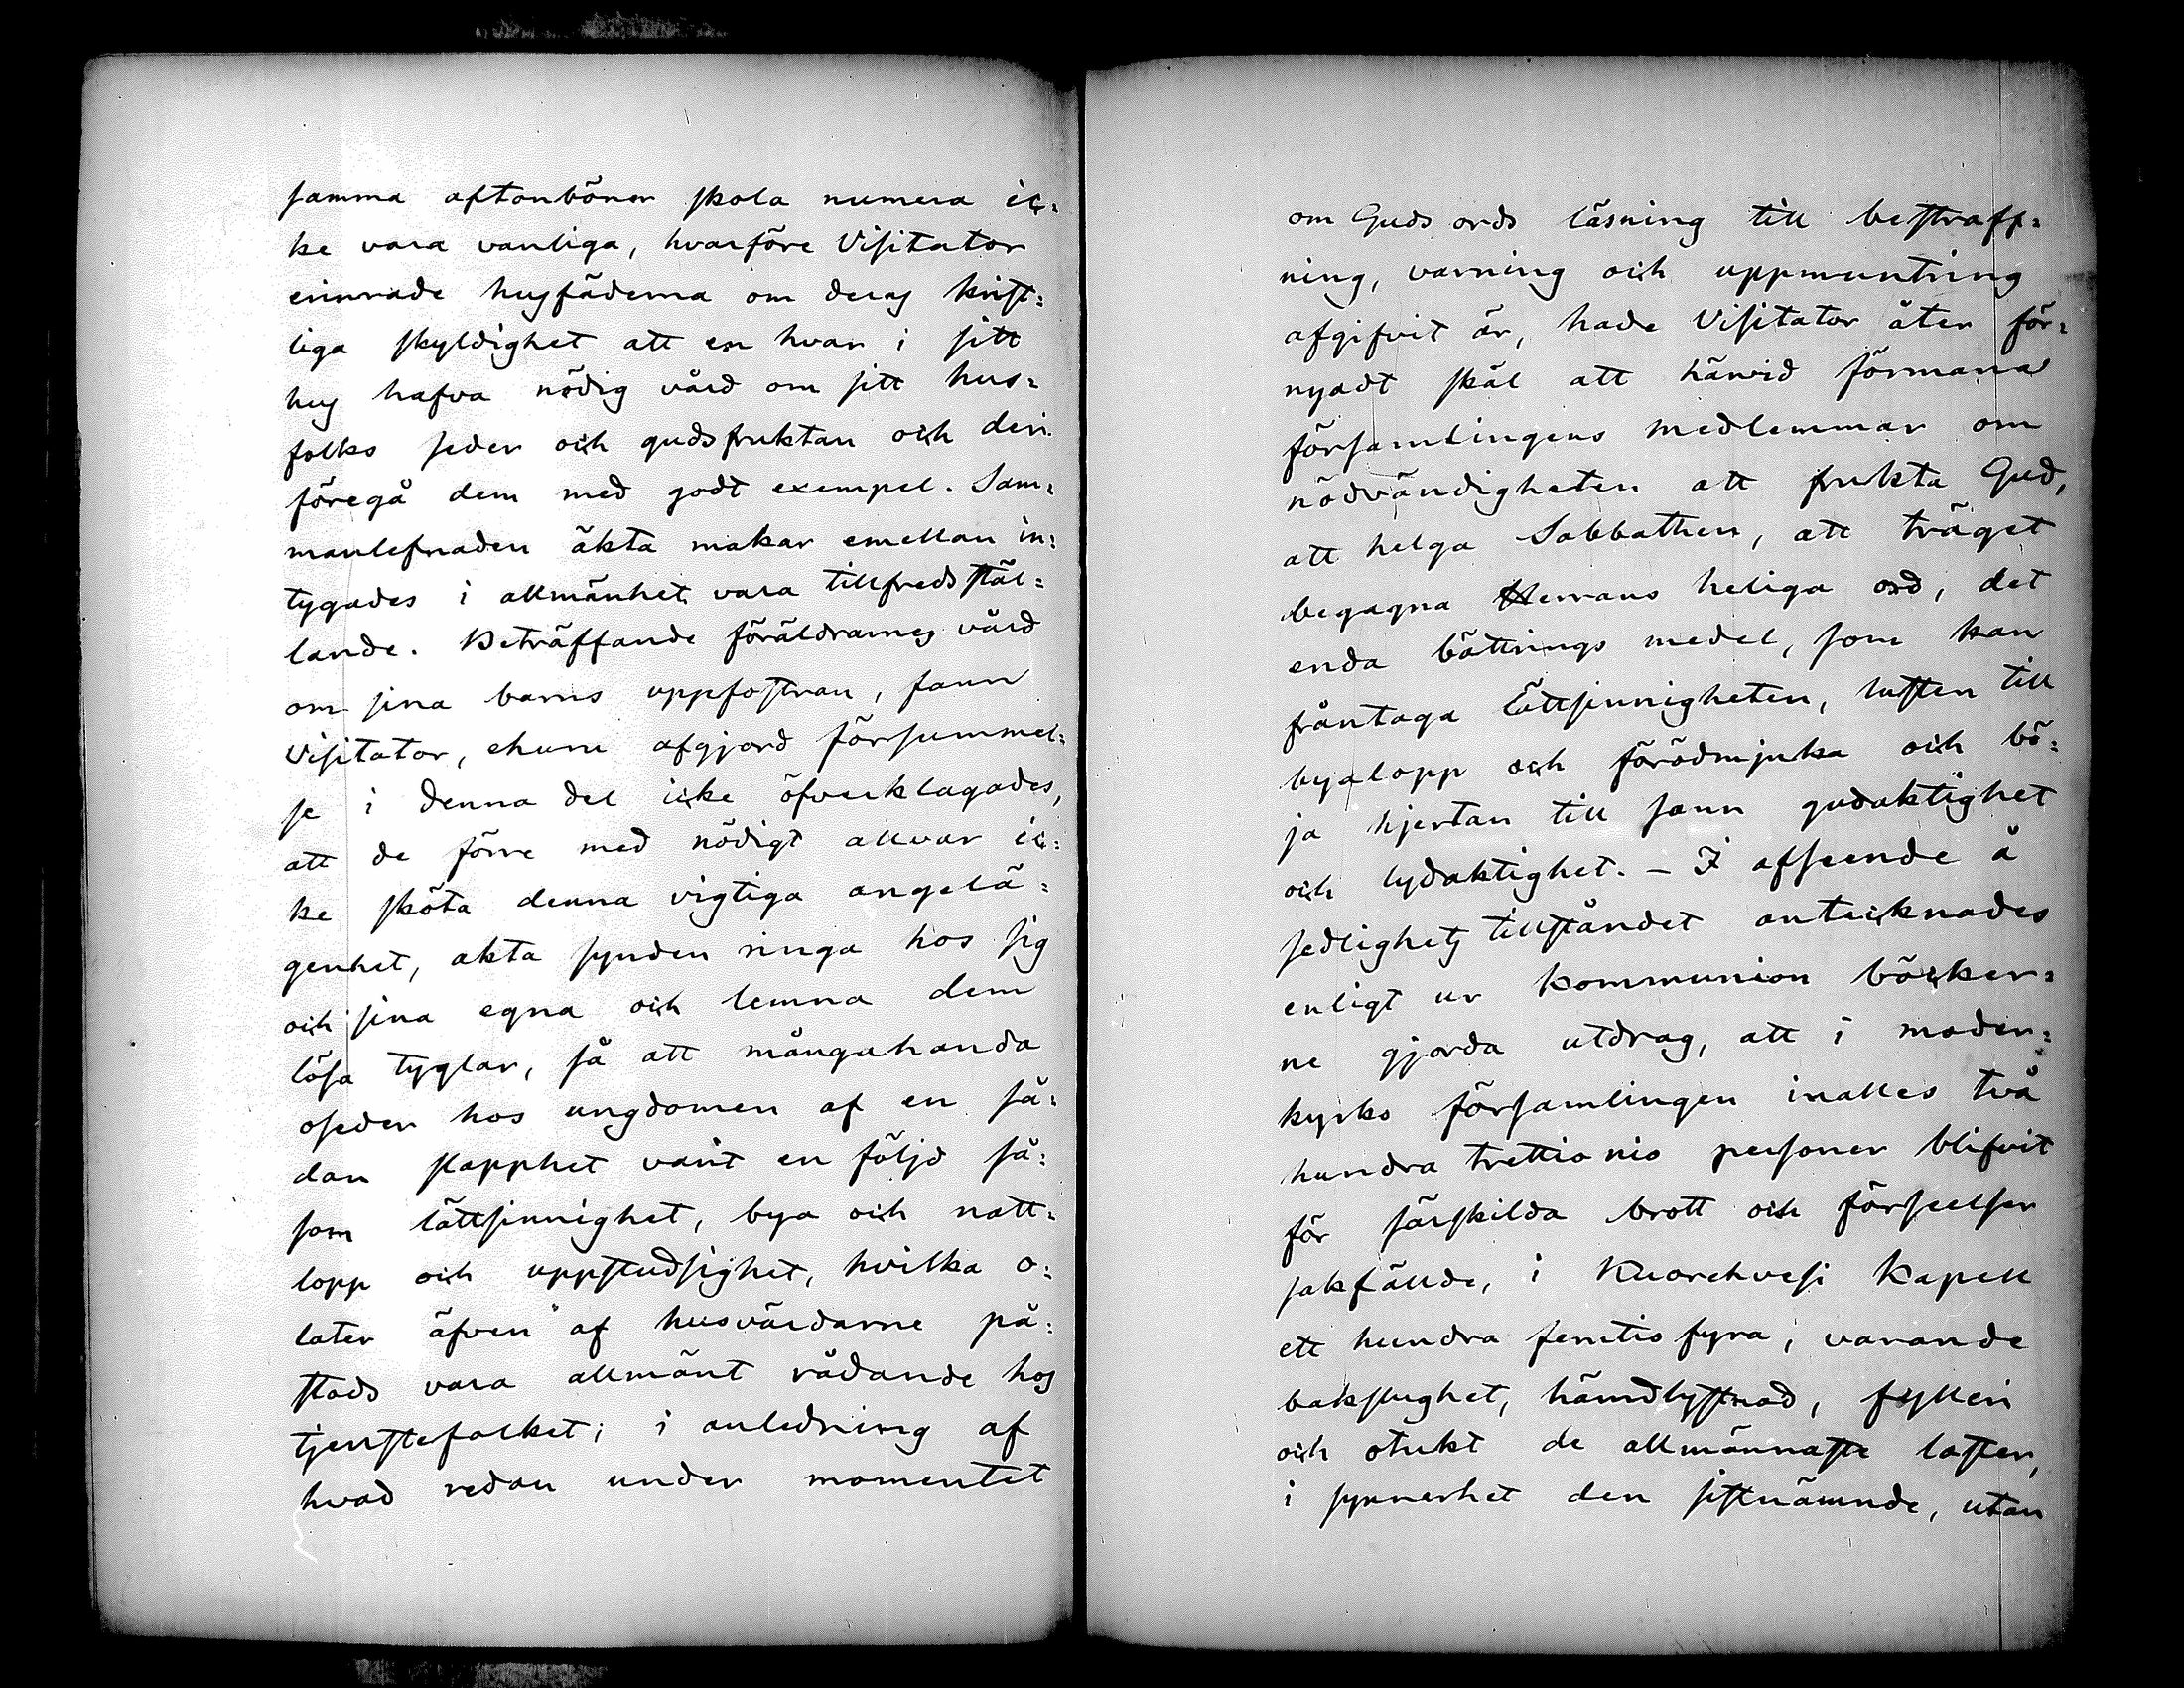 samma aftonböner skola numera ic=
ke vara vanliga, hvarföre Visitator
erinrade husfäderna om deras krist=
liga skyldighet att en hvar i sitt
hus hafva nödig vård om sitt hus=
folks seder och gudsfruktan och deri
föregå dem med godt exempel. Sam=
manlefnaden äkta makar emellan in=
tygades i allmänhet vara tillfredsstäl=
lande. Beträffande föräldrarnes vård
om sina barns uppfostran, fann
Visitator, ehuru afgjord försummel=
se i denna del icke öfverklagades,
att de förre med nödigt allvar ic=
ke sköta denna vigtiga angelä=
genhet, akta synden ringa hos sig
och sina egna och lemna dem
lösa tyglar, så att mångahanda
oseder hos ungdomen af en så=
dan slapphet varit en följd så=
som lättsinnighet, bya och natt=
lopp och uppstudsighet, hvilka o=
later äfven af husvärdarne på=
stods vara allmänt rådande hos
tjenstefolket; i anledning af
hvad redan under momentet
om Guds ords läsning till bestraff=
ning, varning och uppmuntring
afgifvit är, hade Visitator åter för=
nyadt skäl att härvid förmana
församlingens medlemmar om
nödvändigheten att frukta Gud,
att helga Sabbathen, att träget
begagna Herrans heliga ord, det
enda bättrings medel, som kan
fråntaga Lättsinnigheten, lusten till
byalopp och förödmjuka och bö=
ja hjertan till sann gudaktighet
och lydaktighet. – I afseende å
sedlighets tillståndet antecknades
enligt ur Kommunion böcker=
ne gjorda utdrag, att i moder=
kyrko församlingen inalles två
hundra trettio nio personer blifvit
för särskilda brott och förseelser
sakfällde, i Kuorehvesi Kapell
ett hundra femtio fyra, varande
bakslughet, hämdlystnad, fylleri
och otukt de allmännaste laster,
i synnerhet den sistnämnde, utan